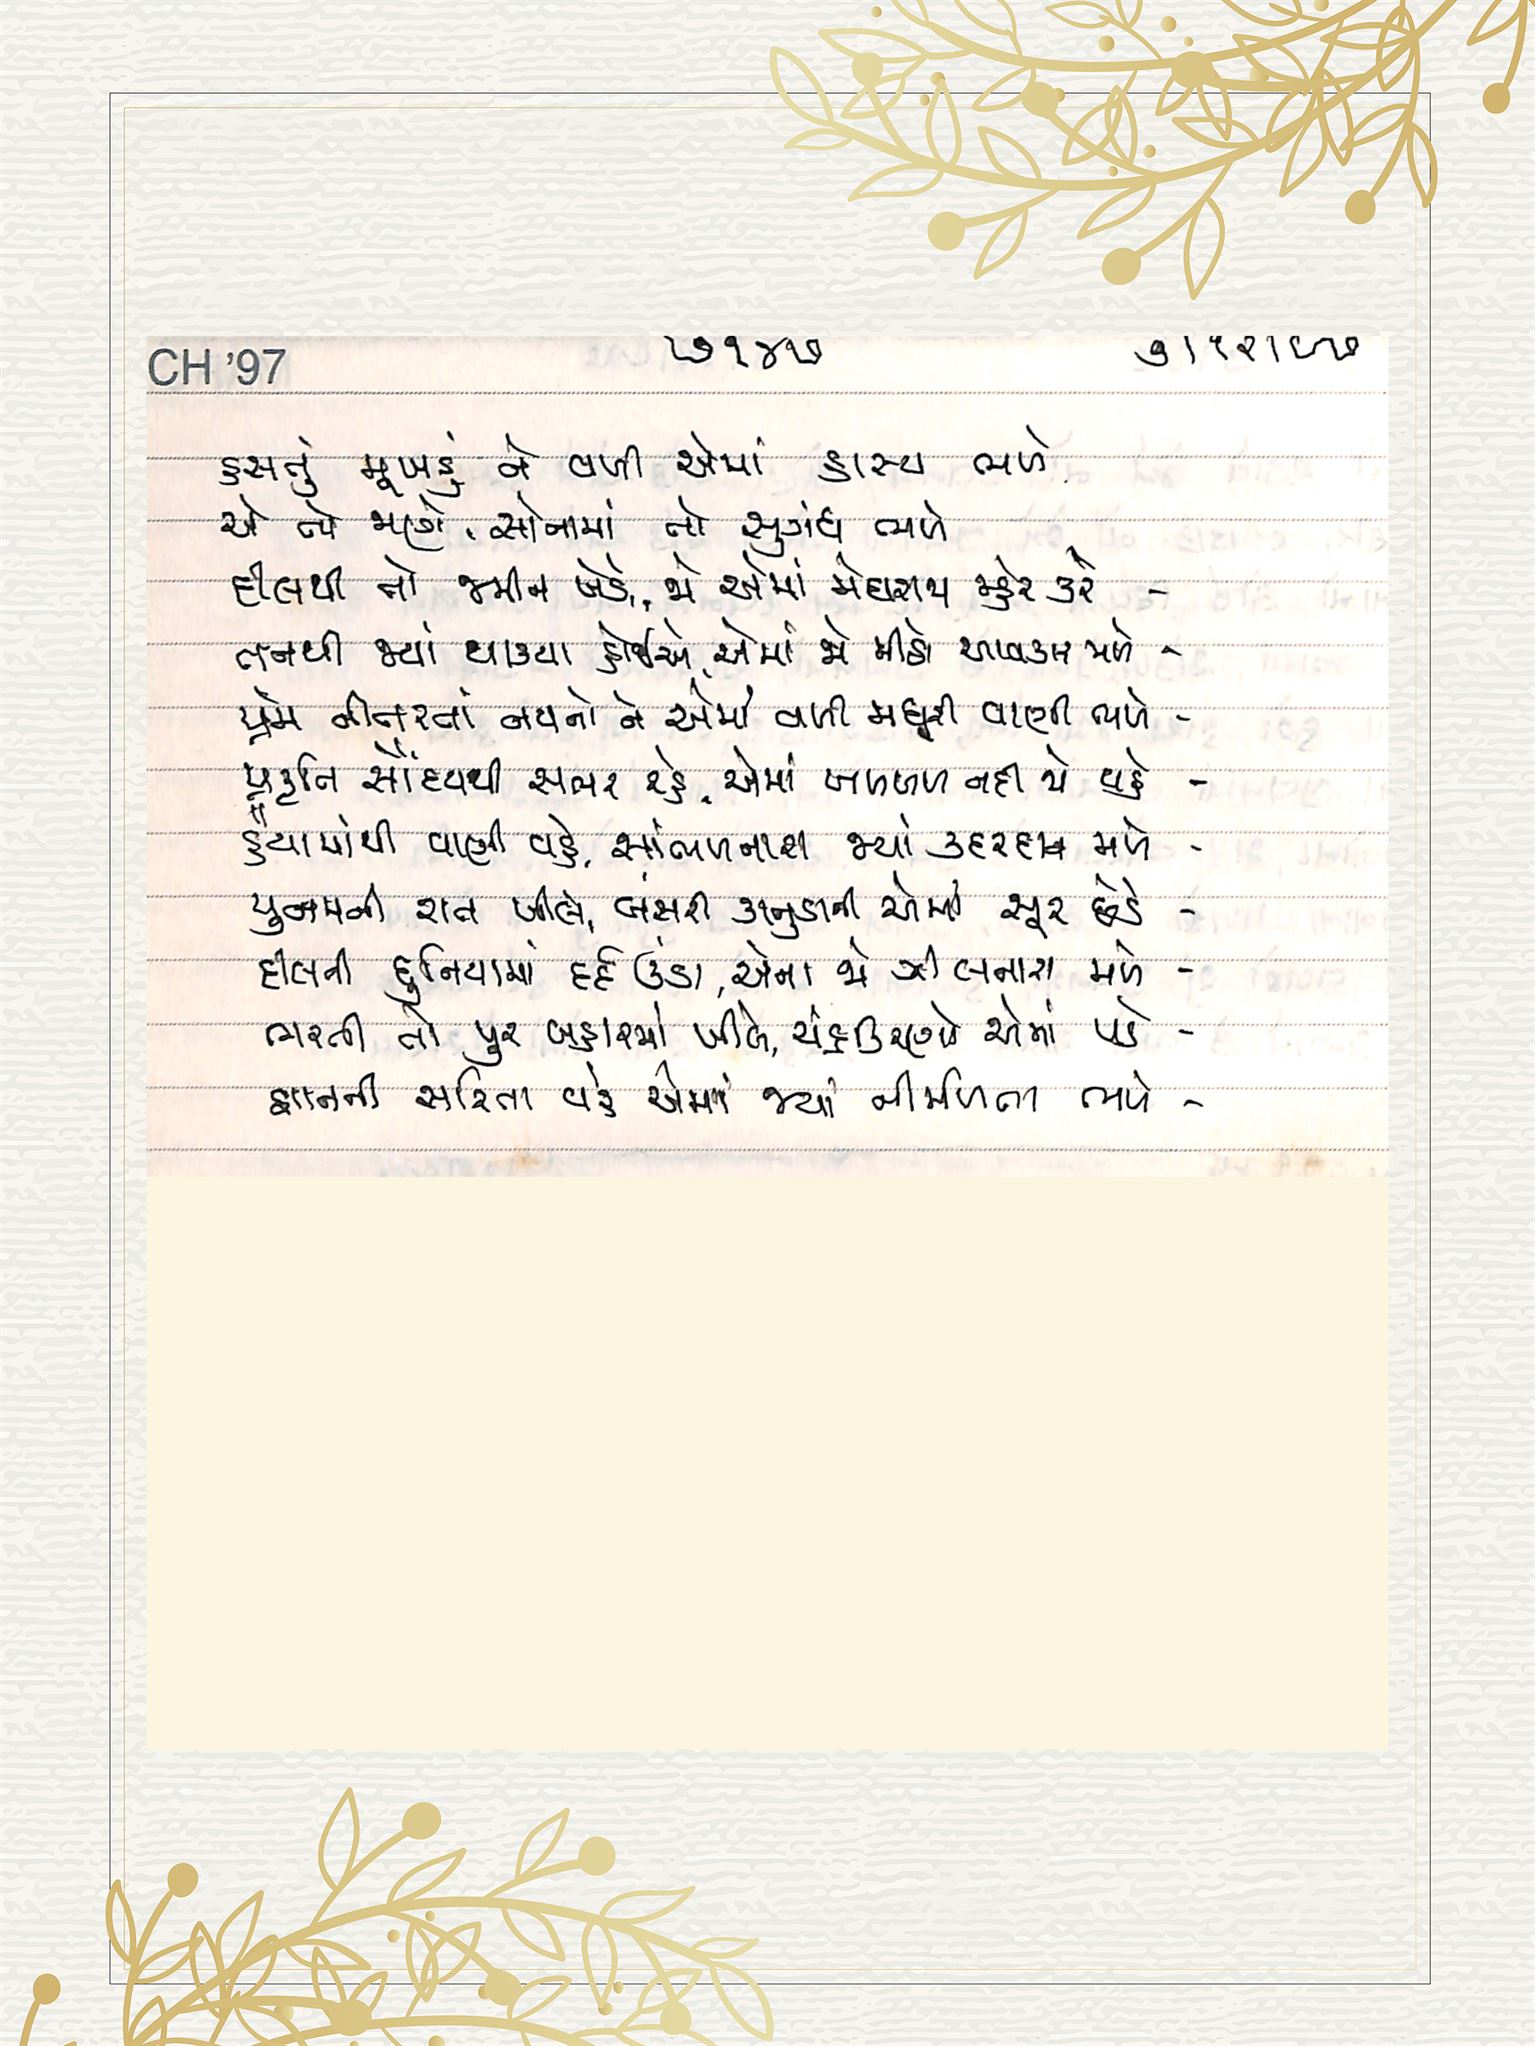 CH '97 ૭૧૪૭ ૭।૧૨।૯૭
હસતું મૂખડું ને વળી એમાં હાસ્ય ભળે
એ તો જાણે, સોનામાં તો સુગંધ ભળે
દીલથી તો જમીન ખેડે, જો એમાં મેઘરાય મ્હેર કરે -
તનથી જ્યાં થાક્યા હોઈએ, એમાં જો મીઠો આવકાર મળે -
પ્રેમ નીતરતાં નયનો ને એમાં વળી મધુરી વાણી ભળે -
પ્રકૃતિ સૌંદર્યથી સભર રહે, એમાં ખળખળ નદી જો વહે -
હૈયામાંથી વાણી વહે, સાંભળનારા જ્યાં કદરદાન મળે -
પુનમની રાત ખીલે, બંસરી કાનુડાની એમાં સૂર છેડે -
દીલની દુનિયામાં દર્દ ઉંડા, એના જો ઝીલનારા મળે -
ભરતી તો પુર બહારમાં ખીલે, ચંદ્રકિરણો એમાં પડે -
જ્ઞાનની સરિતા વહે એમાં જ્યાં નીર્મળતા ભળે -